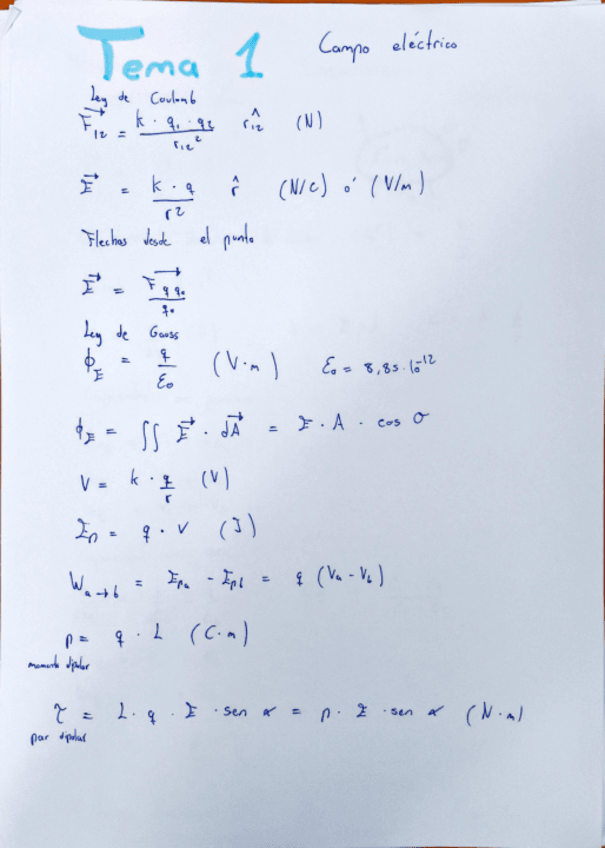 Tema 1 Campo eléctrico
Ley de Coulomb
F⃗₁₂ = k · q₁ · q₂ / r₁₂² r̂₁₂ (N)
E⃗ = k · q / r² r̂ (N/C) ó (V/m)
Flechas desde el punto
E⃗ = F⃗ q q₀ / q₀
Ley de Gauss
ϕ_E = q / ε₀ (V·m) ε₀ = 8,85·10⁻¹²
ϕ_E = ∫∫ E⃗ · dA⃗ = E · A · cos σ
V = k · q / r (V)
Ep = q · V (J)
W a→b = Epa - Epb = q (Va - Vb)
p = q · L (C·m)
momento dipolar
τ = L · q · E · sen α = p · E · sen α (N·m)
par dipolar